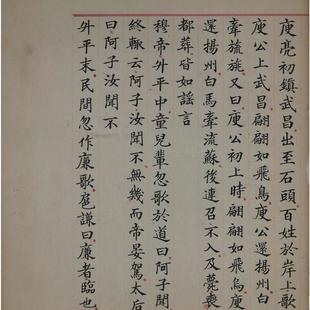 庾亮初鎮武昌出至石頭百姓於岸上歌
庾公上武昌翩翩如飛鳥庾公還揚州白
牽旒旐又曰庾公初上時翩翩如飛鳥庾
還揚州白馬牽流蘇後連召不入及薨喪
都葬皆如謡言
穆帝升平中童兒輩忽歌於道曰阿子聞
終輙云阿子汝聞不無幾而帝晏駕太后
曰阿子汝聞不
升平末民間忽作廉歌扈謙曰廉者臨也